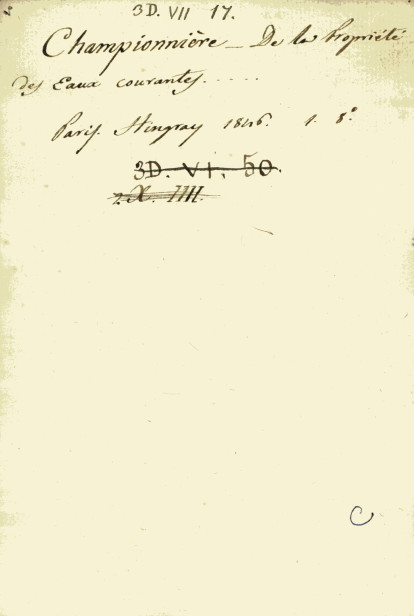 3D. VII 17.
Championnière _ De la Propriété
des Eaux courantes. . . . .
Paris. Hingray 1846. 1. 8°
3D. VI. 50.
2. X. IIII.
C